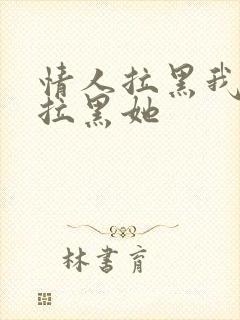 情人拉黑我
拉黑她
林書育